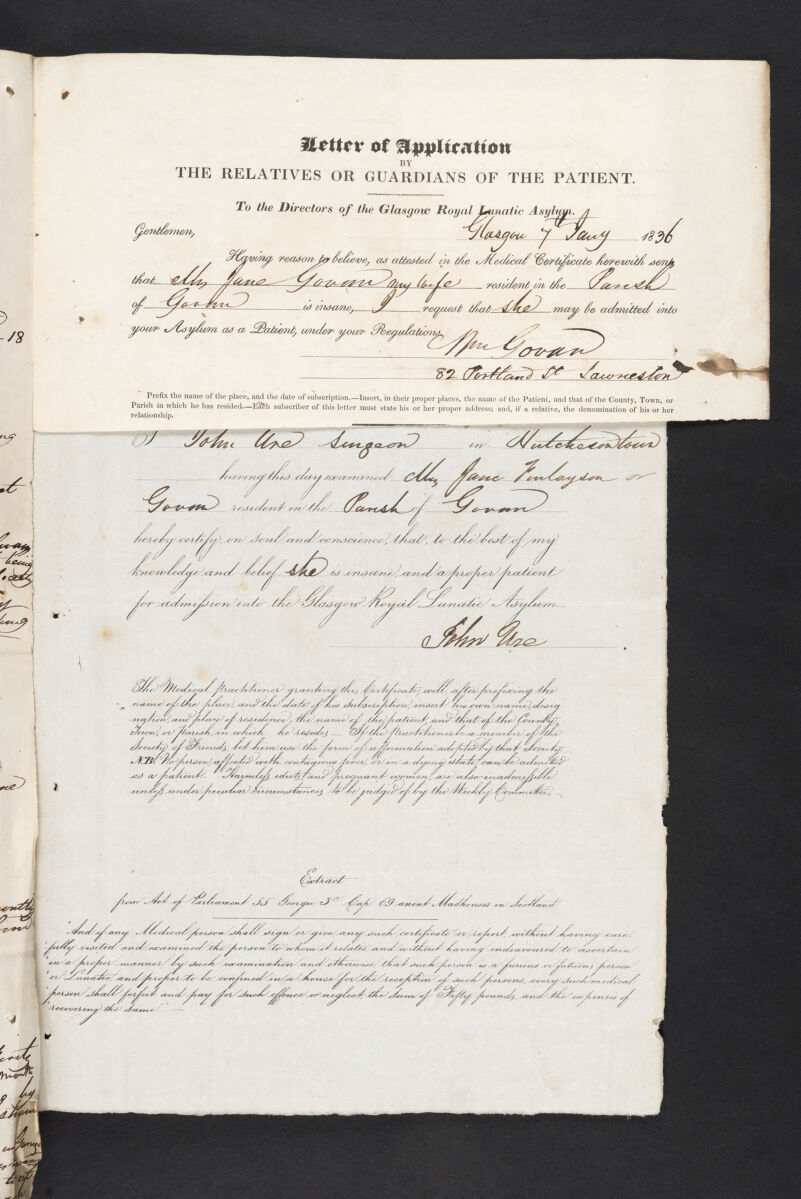 Letter of Application
BY
THE RELATIVES OR GUARDIANS OF THE PATIENT.
To the Directors of the Glasgow Royal Lunatic Asylum.
Gentlemen,
Glasgow 7th Jany 1836
Having reason to believe, as attested in the Medical Certificate herewith sent
that Mrs Jane Govan my wife resident in the Parish
of Govan is insane, I request that she may be admitted into
your Asylum as a Patient, under your Regulations
Wm Govan
82 Portland St Lawrieston
Prefix the name of the place, and the date of subscription.—Insert, in their proper places, the name of the Patient, and that of the County, Town, or
Parish in which he has resided.—Each subscriber of this letter must state his or her proper address; and, if a relative, the denomination of his or her
relationship.
I John Ure Surgeon in Hutchesontown
having this day examined Mrs Jane Finlayson or
Govan resident in the Parish of Govan
hereby certify, on soul and conscience, that, to the best of my
knowledge and belief she is insane, and a proper patient
for admission into the Glasgow Royal Lunatic Asylum
John Ure
The Medical Practitioner granting this Certificate, will, after prefixing the
name of the place, and the date of his subscription, insert his own name, desig
nation, and place of residence, the name of the patient, and that of the County,
Town, or Parish in which he resides — If the practitioner be a member of the
Society of Friends, let him use the form of affirmation adopted by that Society.
NB. No person affected with contagious fever, or in a dying state, can be admitted
as a patient. Harmless idiots, and pregnant women, are also inadmissable
unless under peculiar circumstances, to be judg'd of by the Weekly Committee.
Extract
from Act of Parliament 55 George 3d Cap 69 anent Madhouses in Scotland
"And if any Medical person shall sign or give any such certificate or report without having care-
"fully visited and examined the person to whom it relates, and without having endeavoured to ascertain
"in a proper manner by such examination and otherwise that such person is a furious or fatuous person
"or Lunatic, and proper to be confined in a house for the reception of such persons, every such medical
"person shall forfeit and pay for such offence or neglect the sum of Fifty pounds, and the expenses of
"recovering the same"
18